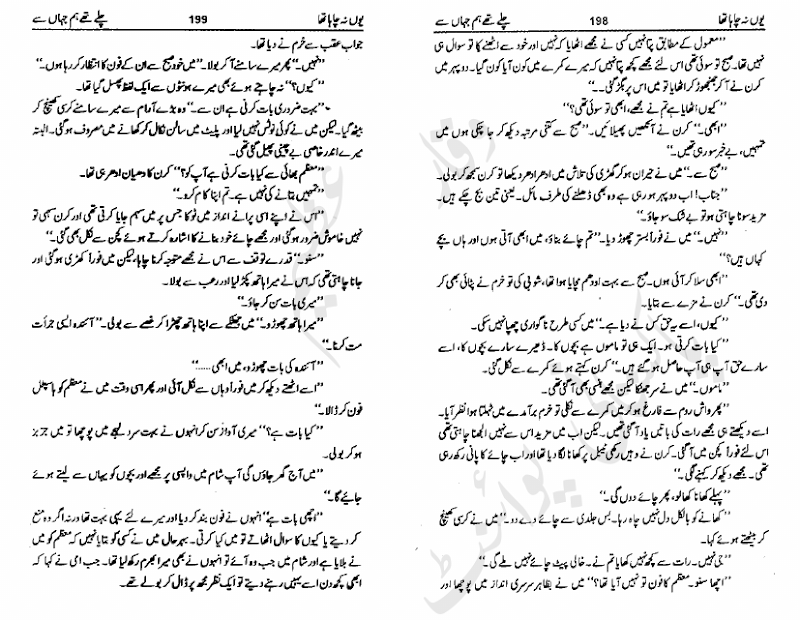 یوں نہ چاہا تھا 198 چلے تھے ہم جہاں سے
”معمول کے مطابق پتا نہیں کسی نے مجھے اٹھایا کہ نہیں اور خود سے اٹھنے کا تو سوال ہی
نہیں تھا۔ صبح تو سوئی تھی اس لئے مجھے کچھ پتا نہیں کہ میرے کمرے میں کون آیا کون گیا۔ دوپہر میں
کرن نے آ کر جھنجھوڑ کر اٹھایا تو میں اس پر بگڑ گئی۔
”کیوں اٹھایا ہے تم نے مجھے، ابھی تو سوئی تھی؟“
”ابھی۔“ کرن نے آنکھیں پھیلائیں۔ ”صبح سے کتنی مرتبہ دیکھ کر جا چکی ہوں میں
تمہیں، بے خبر سو رہی تھیں۔“
”صبح سے۔“ میں نے حیران ہو کر گھڑی کی تلاش میں ادھر ادھر دیکھا تو کرن سمجھ کر بولی۔
”جناب! اب دوپہر ہو رہی ہے وہ بھی ڈھلنے کی طرف مائل۔ یعنی تین بج چکے ہیں۔
مزید سونا چاہتی ہو تو بے شک سو جاؤ۔“
”نہیں۔“ میں نے فوراً بستر چھوڑ دیا۔ ”تم چائے بناؤ، میں ابھی آتی ہوں اور ہاں بچے
کہاں ہیں؟“
”ابھی سلا کر آئی ہوں۔ صبح سے بہت اودھم مچایا ہوا تھا، شوبی کی تو خرم نے پٹائی بھی کر
دی تھی۔“ کرن نے مزے سے بتایا۔
”کیوں، اسے یہ حق کس نے دیا ہے۔“ میں کسی طرح ناگواری چھپا نہیں سکی۔
”کیا بات کرتی ہو۔ ایک ہی تو ماموں ہے بچوں کا۔ ڈھیر سارے بچوں کا، اسے
سارے حق آپ ہی آپ حاصل ہو گئے ہیں۔“ کرن کہتے ہوئے کمرے سے نکل گئی۔
”ماموں۔“ میں نے سر جھٹکا لیکن مجھے ہنسی بھی آ گئی تھی۔
”پھر واش روم سے فارغ ہو کر میں کمرے سے نکلی تو خرم برآمدے میں ٹہلتا ہوا نظر آیا۔
اسے دیکھتے ہی مجھے رات کی باتیں یاد آ گئی تھیں۔ لیکن اب میں مزید اس سے نہیں الجھنا چاہتی تھی
اس لئے فوراً کچن میں آ گئی۔ کرن نے وہیں رکھی ٹیبل پر کھانا لگا دیا تھا اور اب چائے کا پانی رکھ رہی
تھی۔ مجھے دیکھ کر کہنے لگی۔“
”پہلے کھانا کھا لو، پھر چائے دوں گی۔“
”کھانے کو بالکل دل نہیں چاہ رہا۔ بس جلدی سے چائے دے دو۔“ میں نے کرسی کھینچ
کر بیٹھتے ہوئے کہا۔
”جی نہیں۔ رات سے کچھ نہیں کھایا تم نے۔ خالی پیٹ چائے نہیں ملے گی۔“
”اچھا سنو۔ معظم کا فون تو نہیں آیا تھا؟“ میں نے بظاہر سرسری انداز میں پوچھا اور
یوں نہ چاہا تھا 199 چلے تھے ہم جہاں سے
جواب عقب سے خرم نے دیا تھا۔
”نہیں۔“ پھر میرے سامنے آ کر بولا۔ ”میں خود صبح سے ان کے فون کا انتظار کر رہا ہوں۔“
”کیوں؟“ نہ چاہتے ہوئے بھی میرے ہونٹوں سے ایک لفظ پھسل گیا تھا۔
”بہت ضروری بات کرنی ہے ان سے۔“ وہ بڑے آرام سے میرے سامنے کرسی کھینچ کر
بیٹھ گیا۔ لیکن میں نے کوئی نوٹس نہیں لیا اور پلیٹ میں سالن نکال کر کھانے میں مصروف ہو گئی۔ البتہ
میرے اندر خاصی بے چینی پھیل گئی تھی۔
”معظم بھائی سے کیا بات کرنی ہے آپ کو؟“ کرن کا دھیان ادھر ہی تھا۔
”تمہیں بتانے کی نہیں ہے۔ تم اپنا کام کرو۔“
”اس نے اپنے اسی پرانے انداز میں ٹوکا جس پر میں سہم جایا کرتی تھی اور کرن سہمی تو
نہیں خاموش ضرور ہو گئی اور مجھے چائے خود بنانے کا اشارہ کرتے ہوئے کچن سے نکل بھی گئی۔“
”سنو۔“ قدرے توقف سے اس نے مجھے متوجہ کرنا چاہا، لیکن میں فوراً اٹھ کھڑی ہو گئی اور
جانا چاہتی تھی کہ اس نے میرا ہاتھ پکڑ لیا اور رعب سے بولا۔
”میری بات سن کر جاؤ۔“
”میرا ہاتھ چھوڑو۔“ میں جھٹکے سے اپنا ہاتھ چھڑا کر غصے سے بولی۔ ”آئندہ ایسی جرأت
مت کرنا۔“
”آئندہ کی بات چھوڑو، میں ابھی......“
”اسے اٹھتے دیکھ کر میں فوراً وہاں سے نکل آئی اور پھر اسی وقت میں نے معظم کو ہاسپٹل
فون کر ڈالا۔“
”کیا بات ہے؟“ میری آواز سن کر انہوں نے بہت سرد لہجے میں پوچھا تو میں جزبز
ہو کر بولی۔
”میں آج گھر جاؤں گی آپ شام میں واپسی پر مجھے اور بچوں کو یہاں سے لیتے ہوئے
جائیے گا۔“
”اچھی بات ہے“ انہوں نے فون بند کر دیا اور میرے لئے یہی بہت تھا ورنہ اگر وہ منع
کر دیتے یا کیوں کا سوال اٹھاتے تو میں کیا کرتی۔ بہر حال میں نے کسی کو بتایا نہیں کہ معظم کو میں
نے بلایا ہے اور شام میں جب وہ آئے تو انہوں نے بھی میرا بھرم رکھ لیا تھا۔ جب امی نے کہا کہ
ابھی کچھ دن اسے یہیں رہنے دیتے تو ایک نظر مجھ پر ڈال کر بولے تھے۔